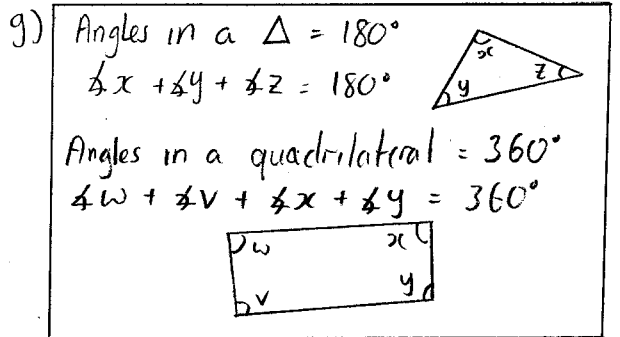 g) Angles in a Δ = 180°
∡x + ∡y + ∡z = 180°
x
z
y
Angles in a quadrilateral = 360°
∡w + ∡v + ∡x + ∡y = 360°
w
x
v
y